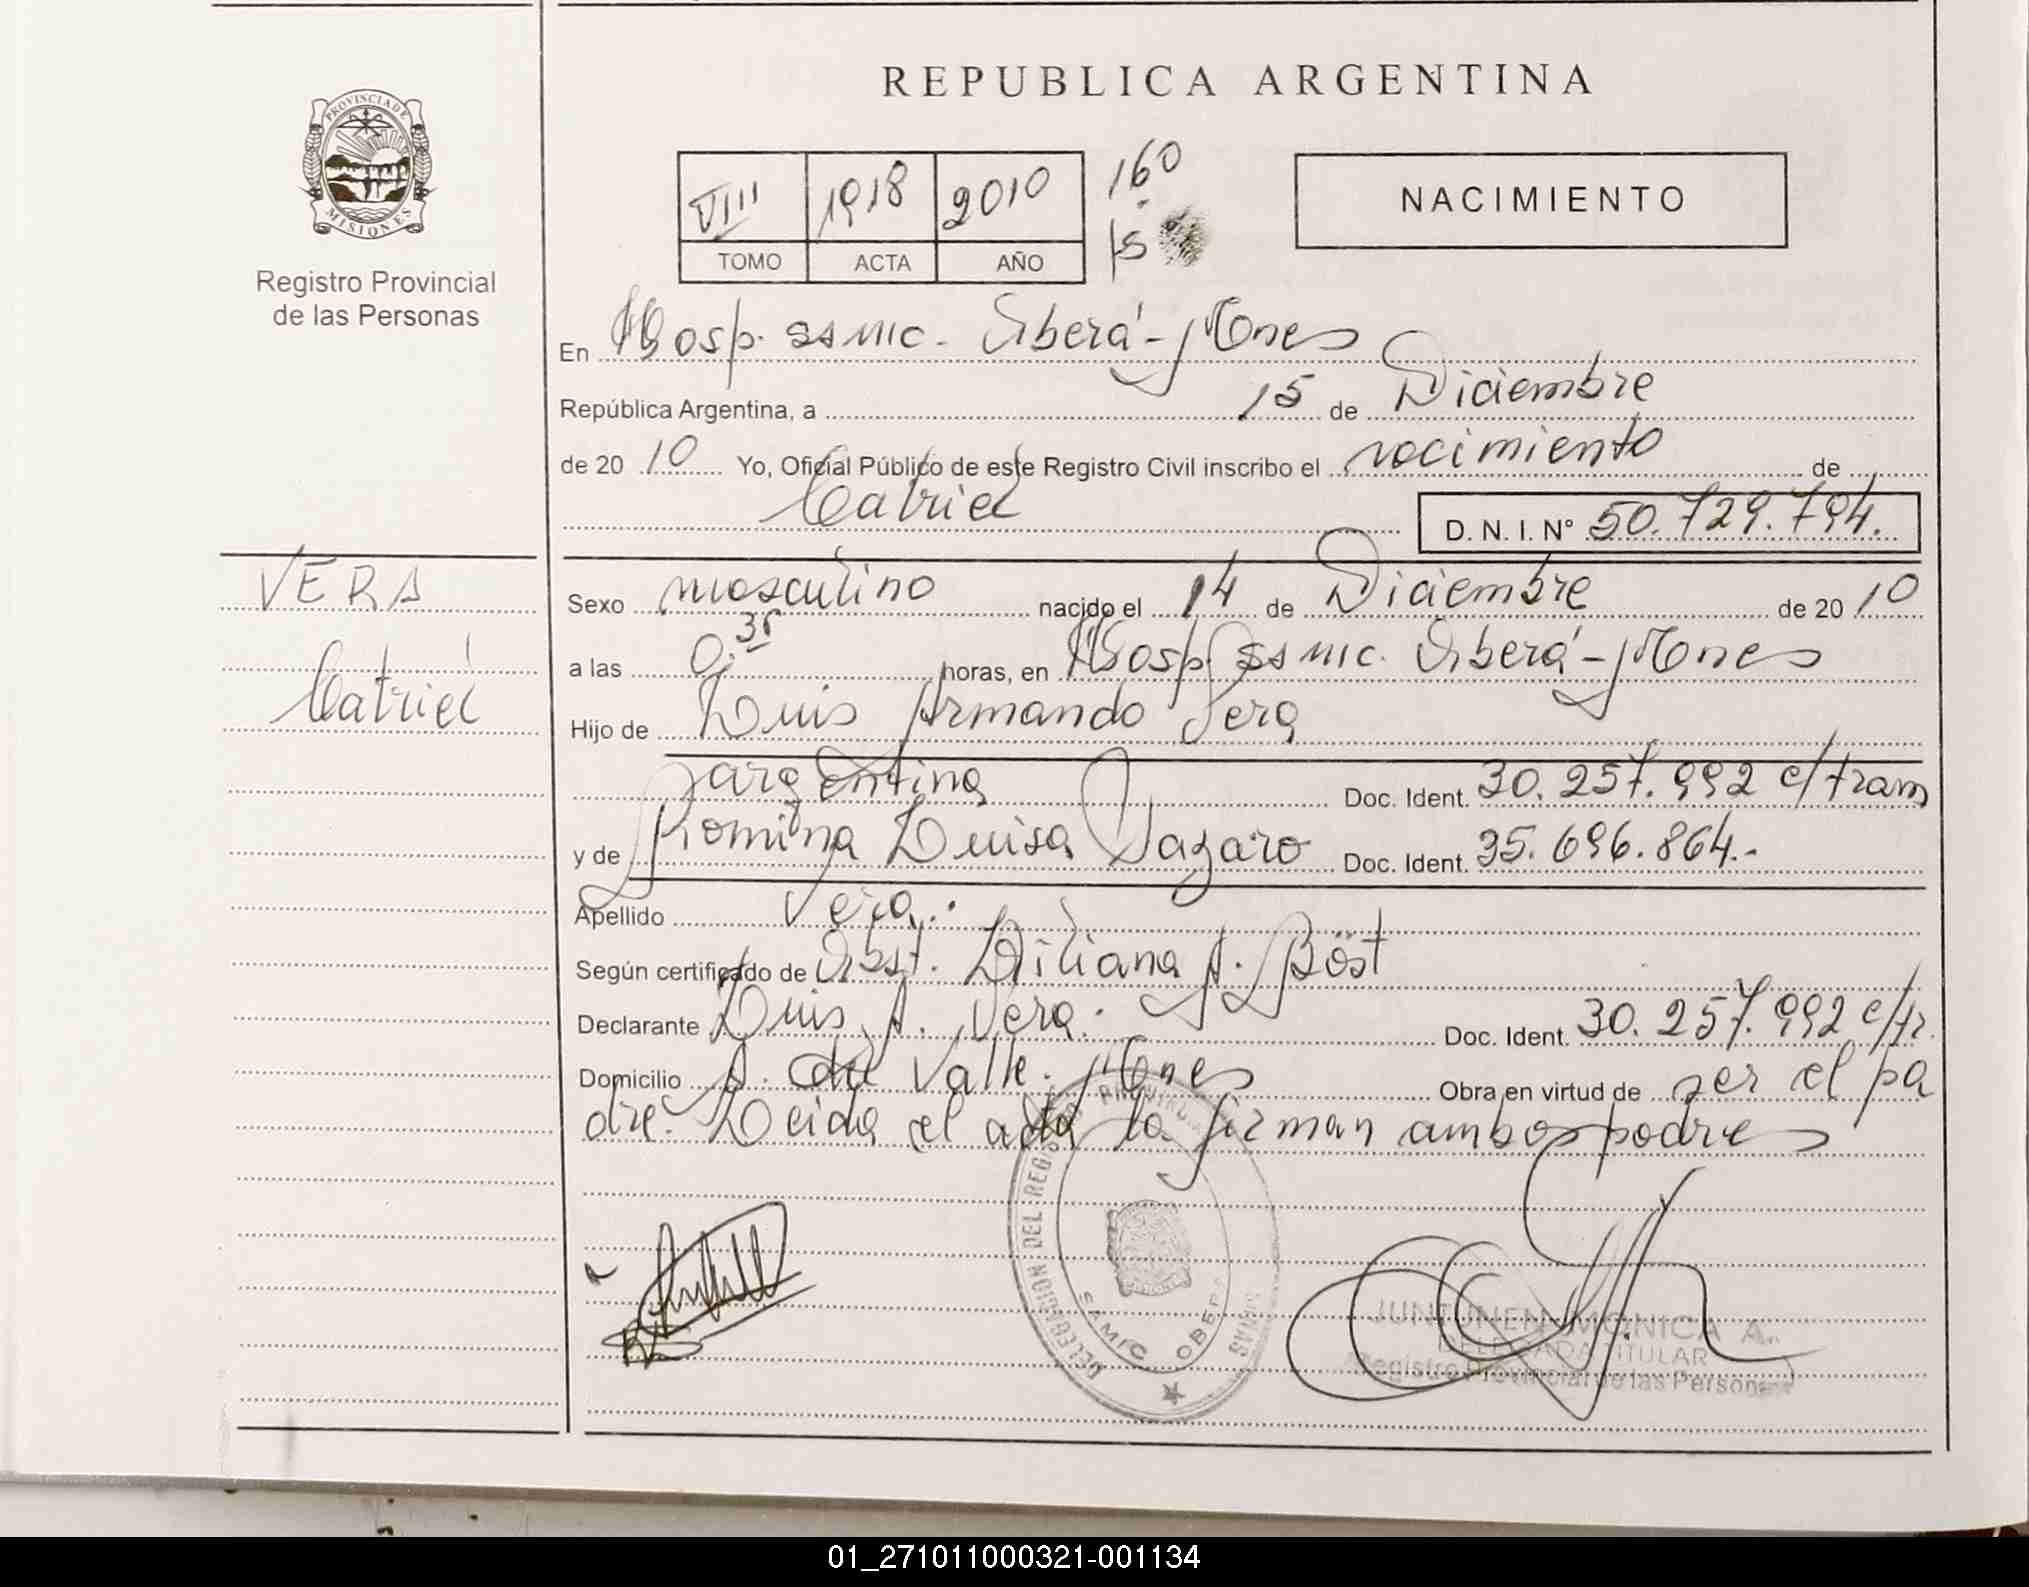 REPUBLICA ARGENTINA
PROVINCIA DE
MISIONES
Registro Provincial
de las Personas
VIII 1918 2010 160
TOMO ACTA AÑO 15
NACIMIENTO
En Hosp. ss mic. Oberá - Mones
República Argentina, a 15 de Diciembre
de 20 10 Yo, Oficial Público de este Registro Civil inscribo el nacimiento de
Catriel D. N. I. N° 50.729.794.
VERA
Catriel
Sexo masculino nacido el 14 de Diciembre de 20 10
a las 0:35 horas, en Hosp. ss mic. Oberá - Mones
Hijo de Luis Armando Vera
argentina Doc. Ident. 30.257.992 c/tram
y de Romina Luisa Doc. Ident. 35.696.864.-
Apellido Vera.
Según certificado de Obst. Liliana A. Böst
Declarante Luis A. Vera. Doc. Ident. 30.257.992 c/tr.
Domicilio A. del Valle. Mones Obra en virtud de ser el pa
dre. Leida el acta la firman ambos padres
DELEGACION DEL REGISTRO
SAMIC OBERA
JUNTUNEN MONICA A.
DELEGADA TITULAR
Registro Provincial de las Personas
01_271011000321-001134